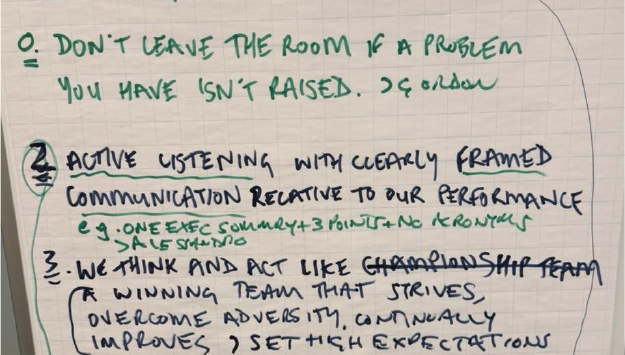 0. DON'T LEAVE THE ROOM IF A PROBLEM
YOU HAVE ISN'T RAISED. > GORDON
2. ACTIVE LISTENING WITH CLEARLY FRAMED
COMMUNICATION RELATIVE TO OUR PERFORMANCE
e.g. ONE EXEC SUMMARY + 3 POINTS + NO ACRONYMS
> ALESSANDRO
3. WE THINK AND ACT LIKE CHAMPIONSHIP TEAM
A WINNING TEAM THAT STRIVES,
OVERCOME ADVERSITY, CONTINUALLY
IMPROVES > SET HIGH EXPECTATIONS